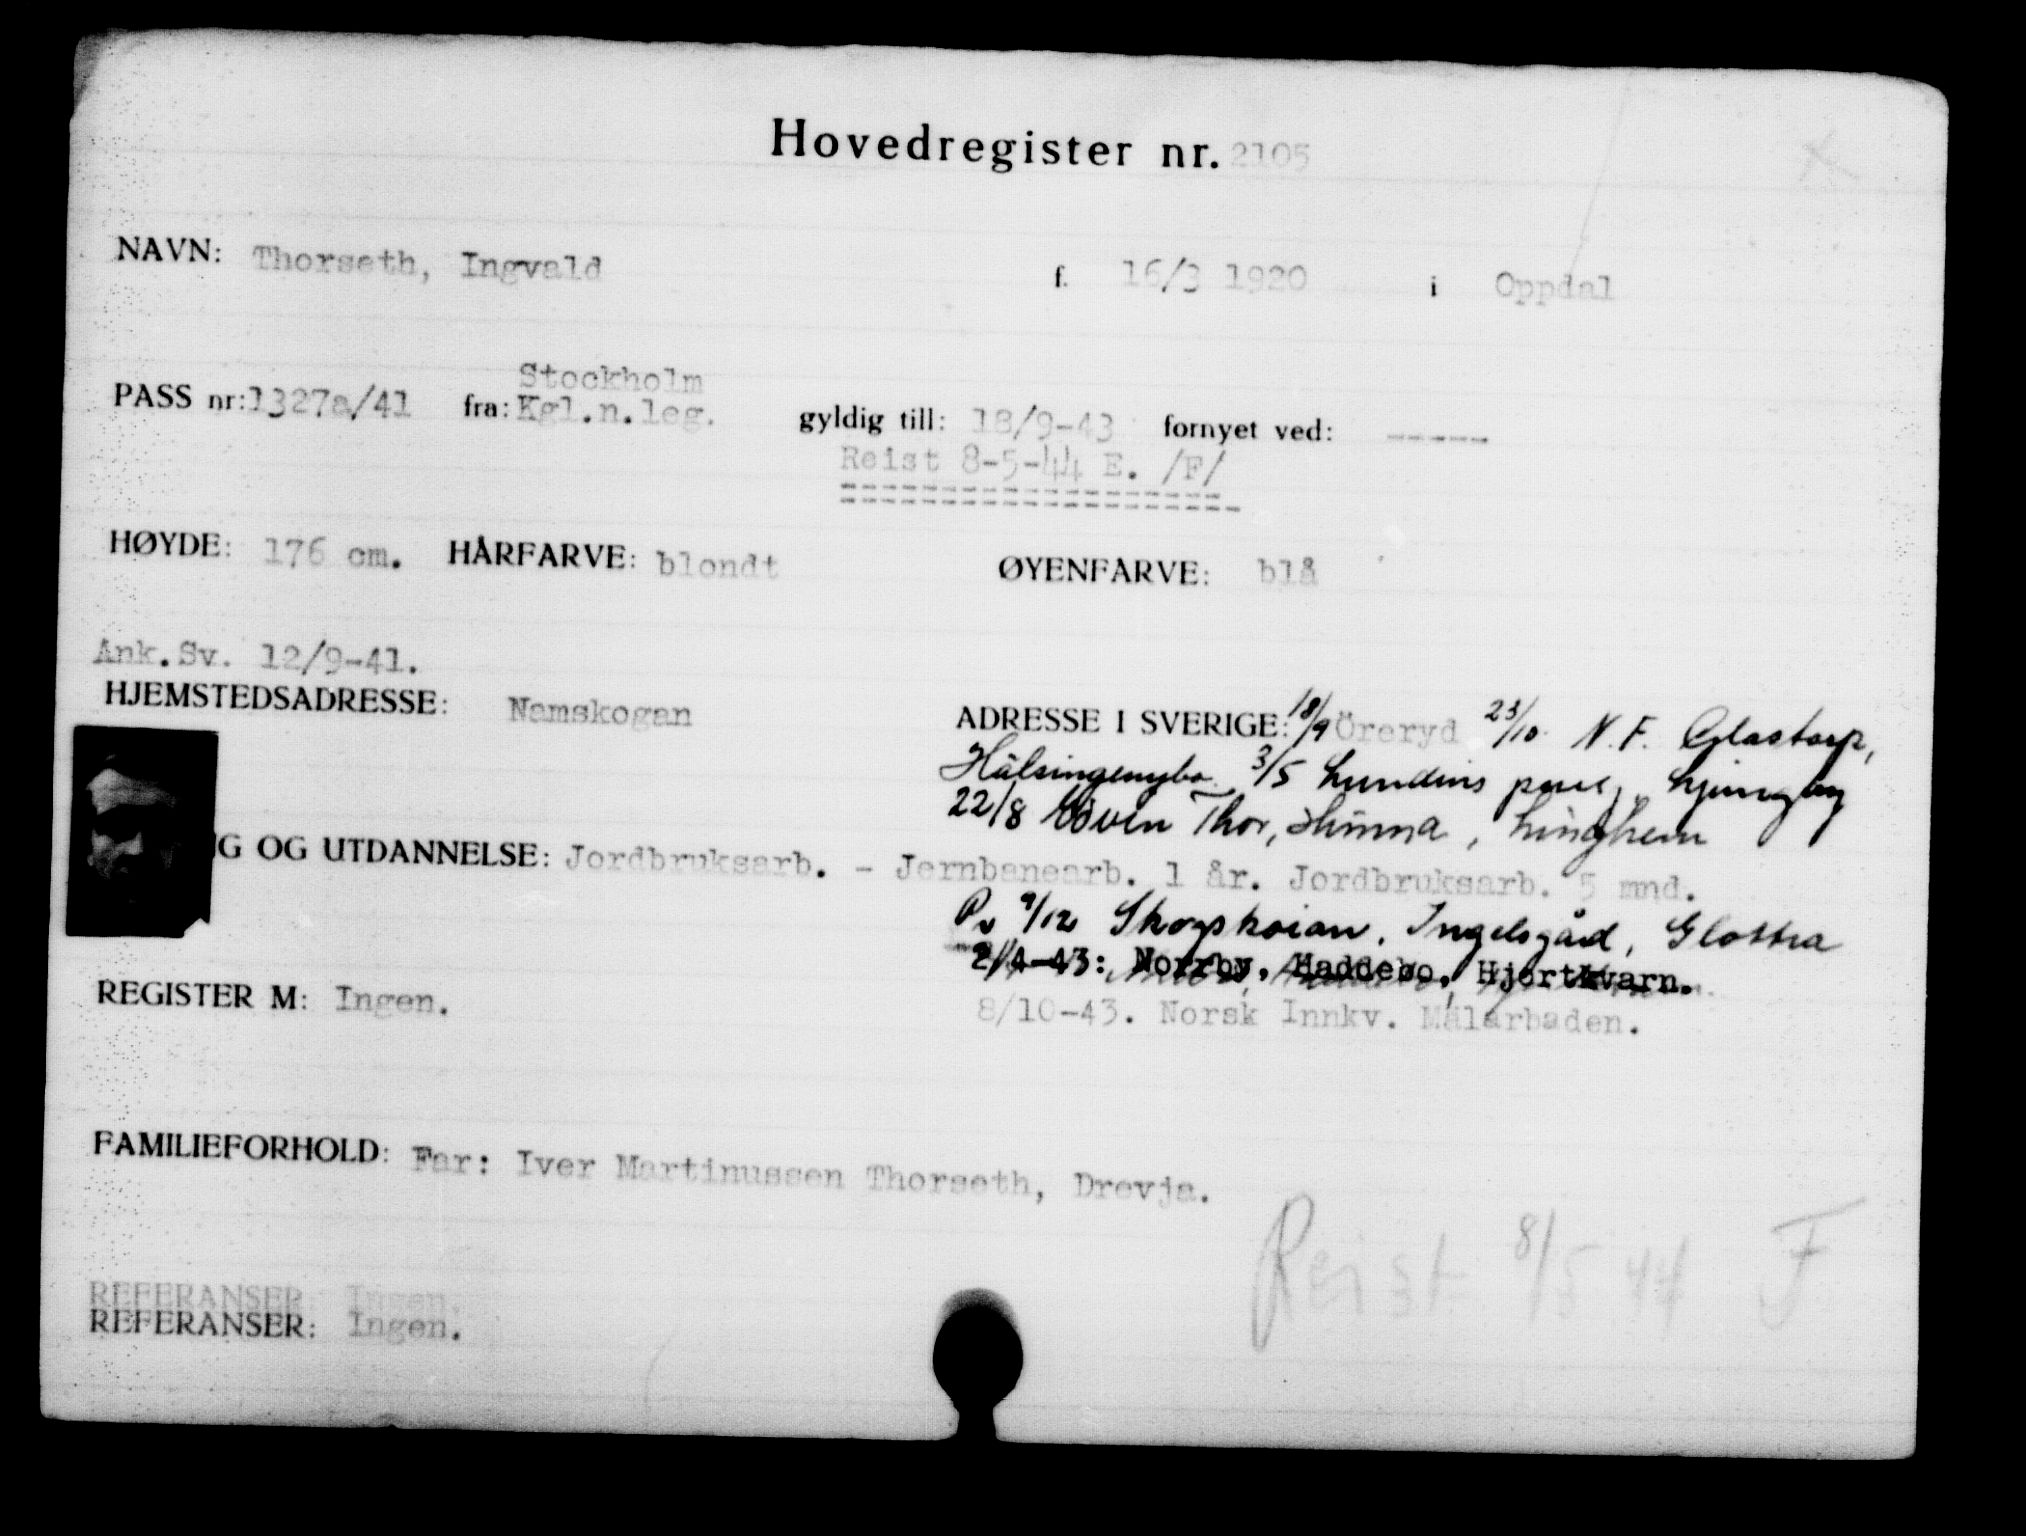 Hovedregister nr. 2105
NAVN: Thorseth, Ingvald f. 16/3 1920 i Oppdal
Stockholm
PASS nr: 1327a/41 fra: Kgl.n.leg. gyldig till: 18/9-43 fornyet ved: -----
Reist 8-5-44 E. /F/
HØYDE: 176 cm. HÅRFARVE: blondt ØYENFARVE: blå
Ank.Sv. 12/9-41.
HJEMSTEDSADRESSE: Namskogan
ADRESSE I SVERIGE: 18/9 Öreryd 23/10. N.F. Glastorp,
Hälsingenybo. 3/5 Lundins pens, Ljungby
22/8 Thor, Linghem
G OG UTDANNELSE: Jordbruksarb. - Jernbanearb. 1 år. Jordbruksarb. 5 mnd.
9/12 Skogskoian, Ingelsgård, Glottra
2/4-43: Norrby, Haddebo, Hjortkvarn.
8/10-43. Norsk Innkv. Mälarbaden.
REGISTER M: Ingen.
FAMILIEFORHOLD: Far: Iver Martinussen Thorseth, Drevja.
Reist 8/5 44 F
REFERANSER: Ingen.
REFERANSER: Ingen.